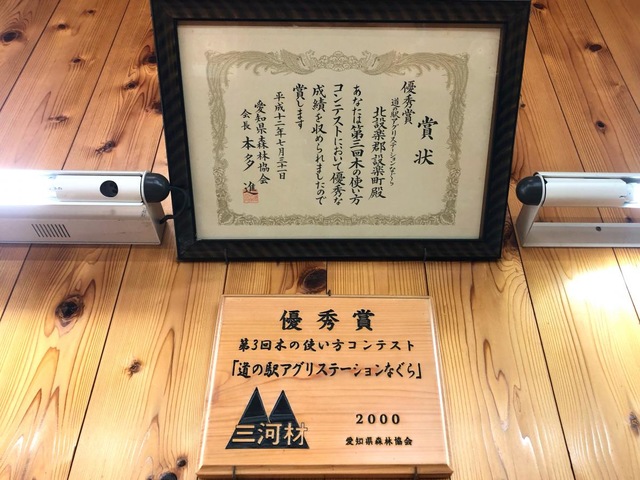 賞状
優秀賞
道の駅アグリステーションなぐら
北設楽郡設楽町殿
あなたは第三回木の使い方
コンテストにおいて優秀な
成績を収められましたので
賞します
平成十二年七月三十一日
愛知県森林協会
会長 本多 進
優秀賞
第3回木の使い方コンテスト
「道の駅アグリステーションなぐら」
三河材
2000
愛知県森林協会